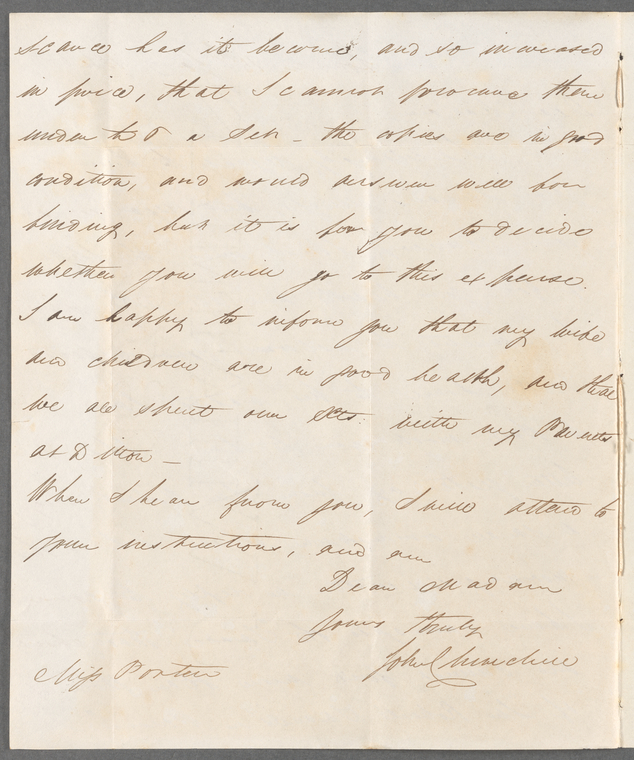 scarce has it become, and so increased
in price, that I cannot procure them
under a Set - the copies are in good
condition, and would answer well for
binding, but it is for you to decide
whether you will go to this expense.
I am happy to inform you that my wife
and children are in good health, and that
we all spent our with my Parents
at Ditton -
When I hear from you, I will attend to
your instructions, and am
Dear Madam
Yours truly
John Churchill
Miss Porter